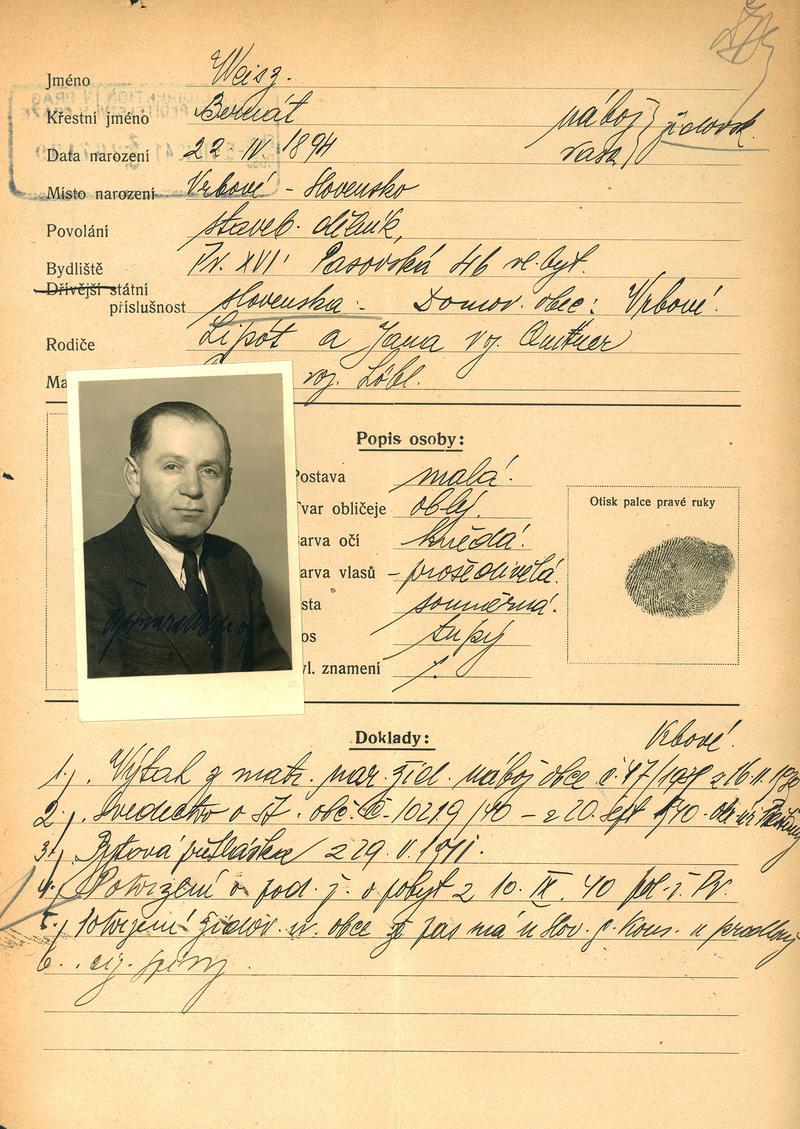 Jméno Weisz.
Křestní jméno Bernát
nábož. rasa } židovsk.
Datum narození 22 IV 1894
Místo narození Vrbové - Slovensko
Povolání staveb. dělník,
Bydliště Pr. XVI. 46 vl. byt.
Dřívější státní
příslušnost slovenská - Domov. obec: Vrbové.
Rodiče Lipót a Jana roz.
Ma roz. Löbl.
Popis osoby:
Postava malá.
Tvar obličeje oblý.
arva očí hnědá.
arva vlasů - prošedivělá.
sta souměrná.
os tupý
vl. znamení
Otisk palce pravé ruky
Doklady:
Vrbové.
1.). Výtah z matr. nar. žid. nábož obce č. 47/
2.). svedectvo o st. obč. č. 10219/40 - z 20. sept 1940.
3.). Bytová přihláška z 29. V. 1941.
4.). Potvrzení o pod. ž. o pobyt z 10. IX. 40 pol. ř. Pr.
5.). Potvrzení židov. n. obce že pas má u slov. g. kons. k prodlouž
6..